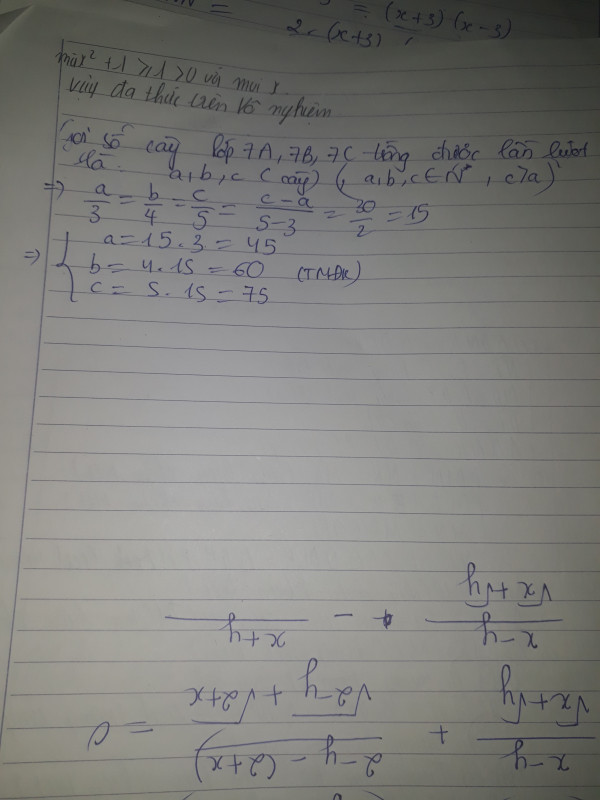 = (x+3)(x-3)
2.(x+3)
mà x² + 1 ≥ 1 > 0 với mọi x.
vậy đa thức trên vô nghiệm
Gọi số cây lớp 7A, 7B, 7C trồng được lần lượt
là a, b, c (cây) (a, b, c ∈ N*, c > a)
=> a/3 = b/4 = c/5 = (c-a)/(5-3) = 30/2 = 15
=> { a = 15.3 = 45
b = 4.15 = 60 (TMĐK)
c = 5.15 = 75
(x-y)/(√x+√y) + (2-y-(2+x))/(√2-y + √2+x) = 0
(x-y)/(√x+√y) + - x+y